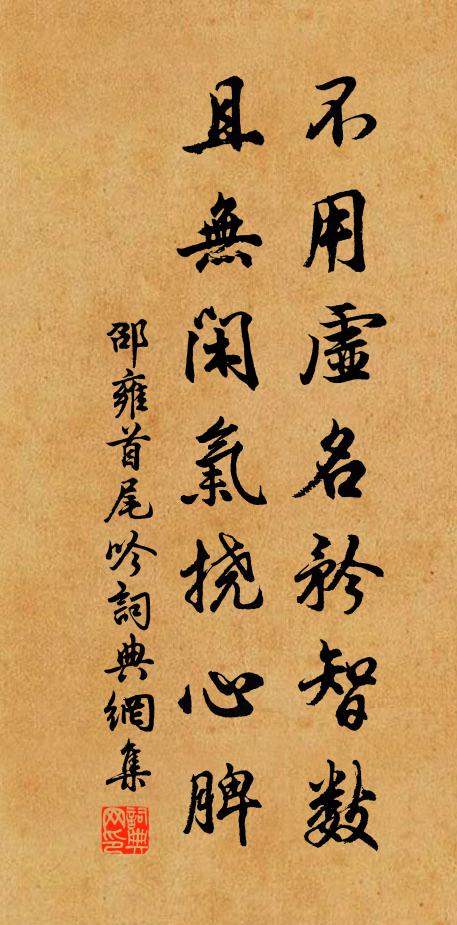 不用虛名矜智數
且無閑氣撓心脾
邵雍首尾吟詞典網集
詞典网印